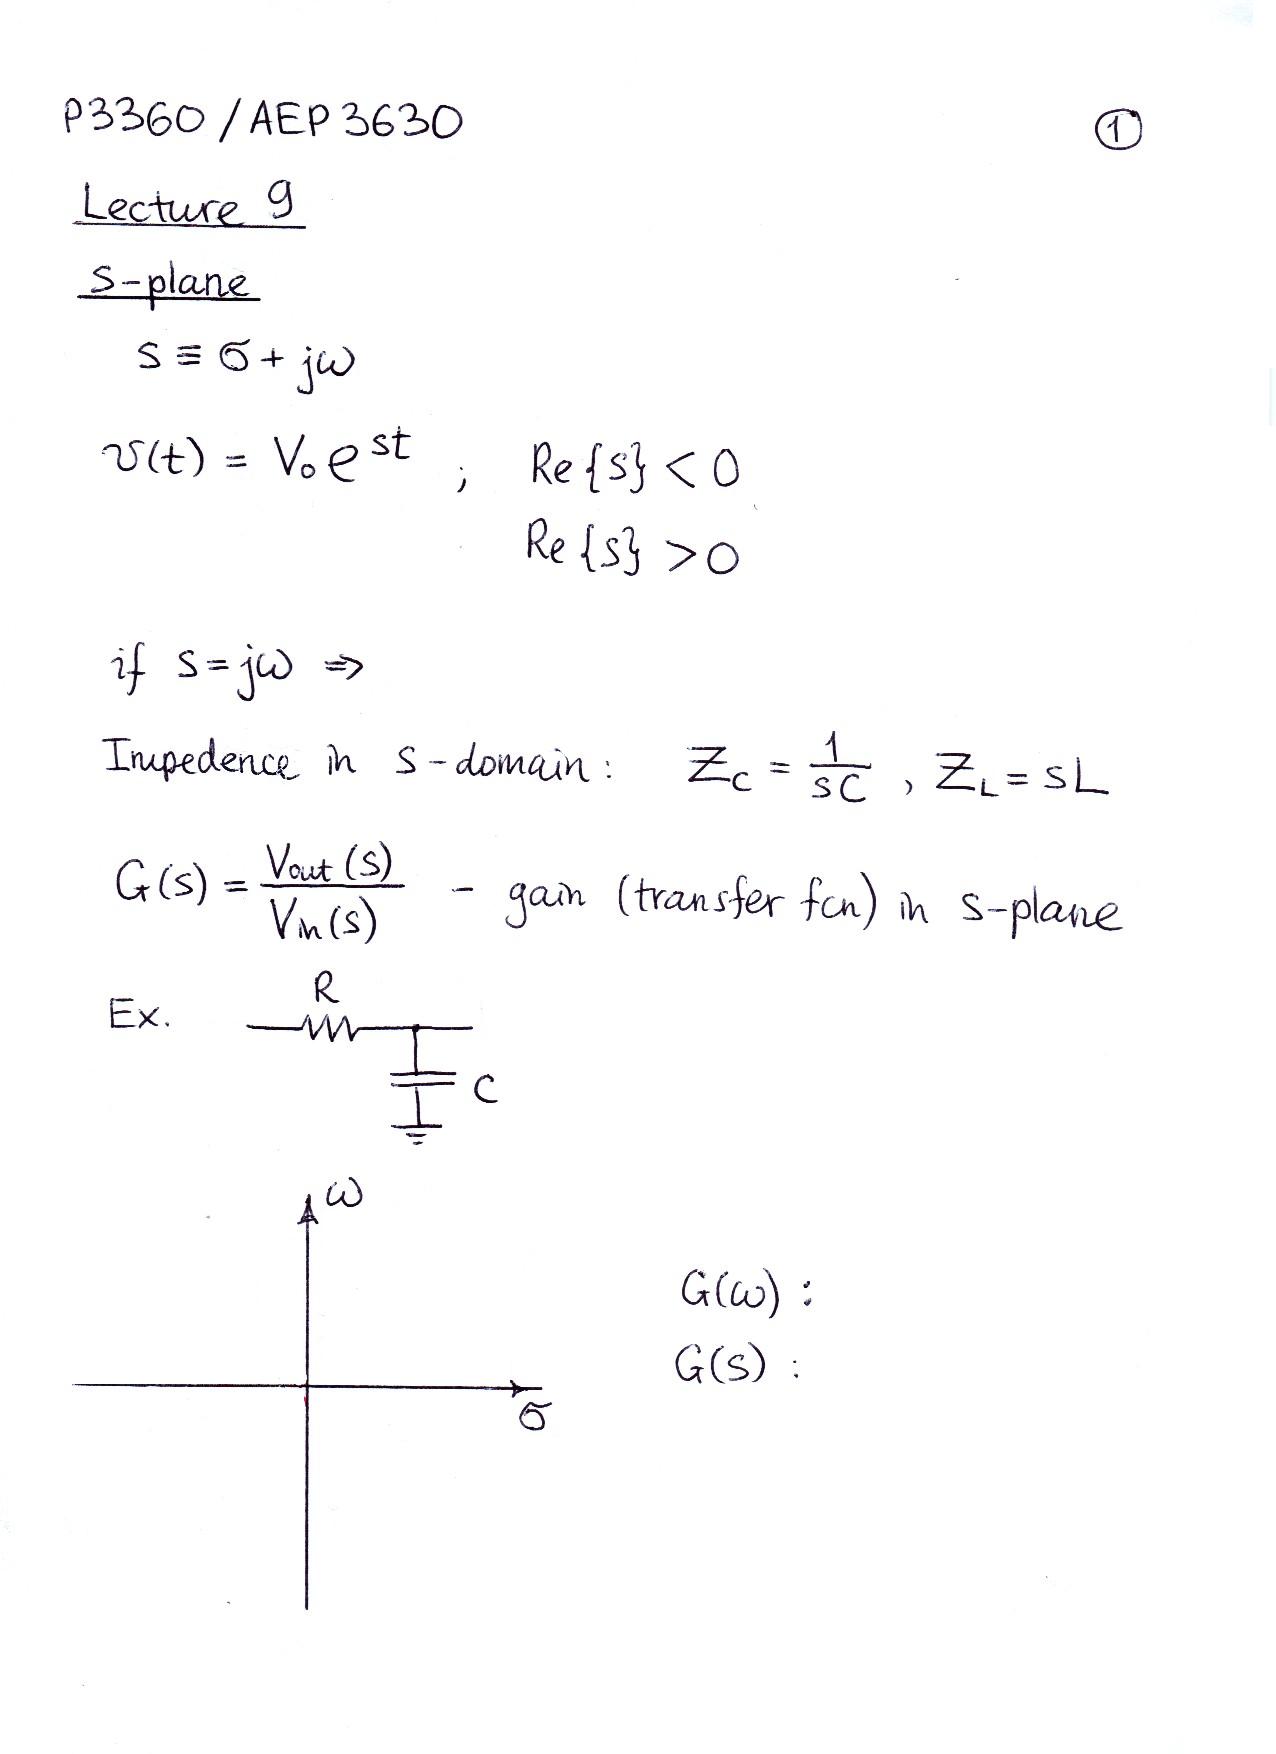 P3360 / AEP 3630
①
Lecture 9
S-plane
s ≡ σ + jω
v(t) = V₀ e^st ; Re{s} < 0
Re{s} > 0
if s = jω ⇒
Impedence in s-domain: Z_C = 1/sC , Z_L = sL
G(s) = Vout(s)/Vin(s) - gain (transfer fcn) in s-plane
R
Ex.
C
ω
G(ω) :
G(s) :
σ